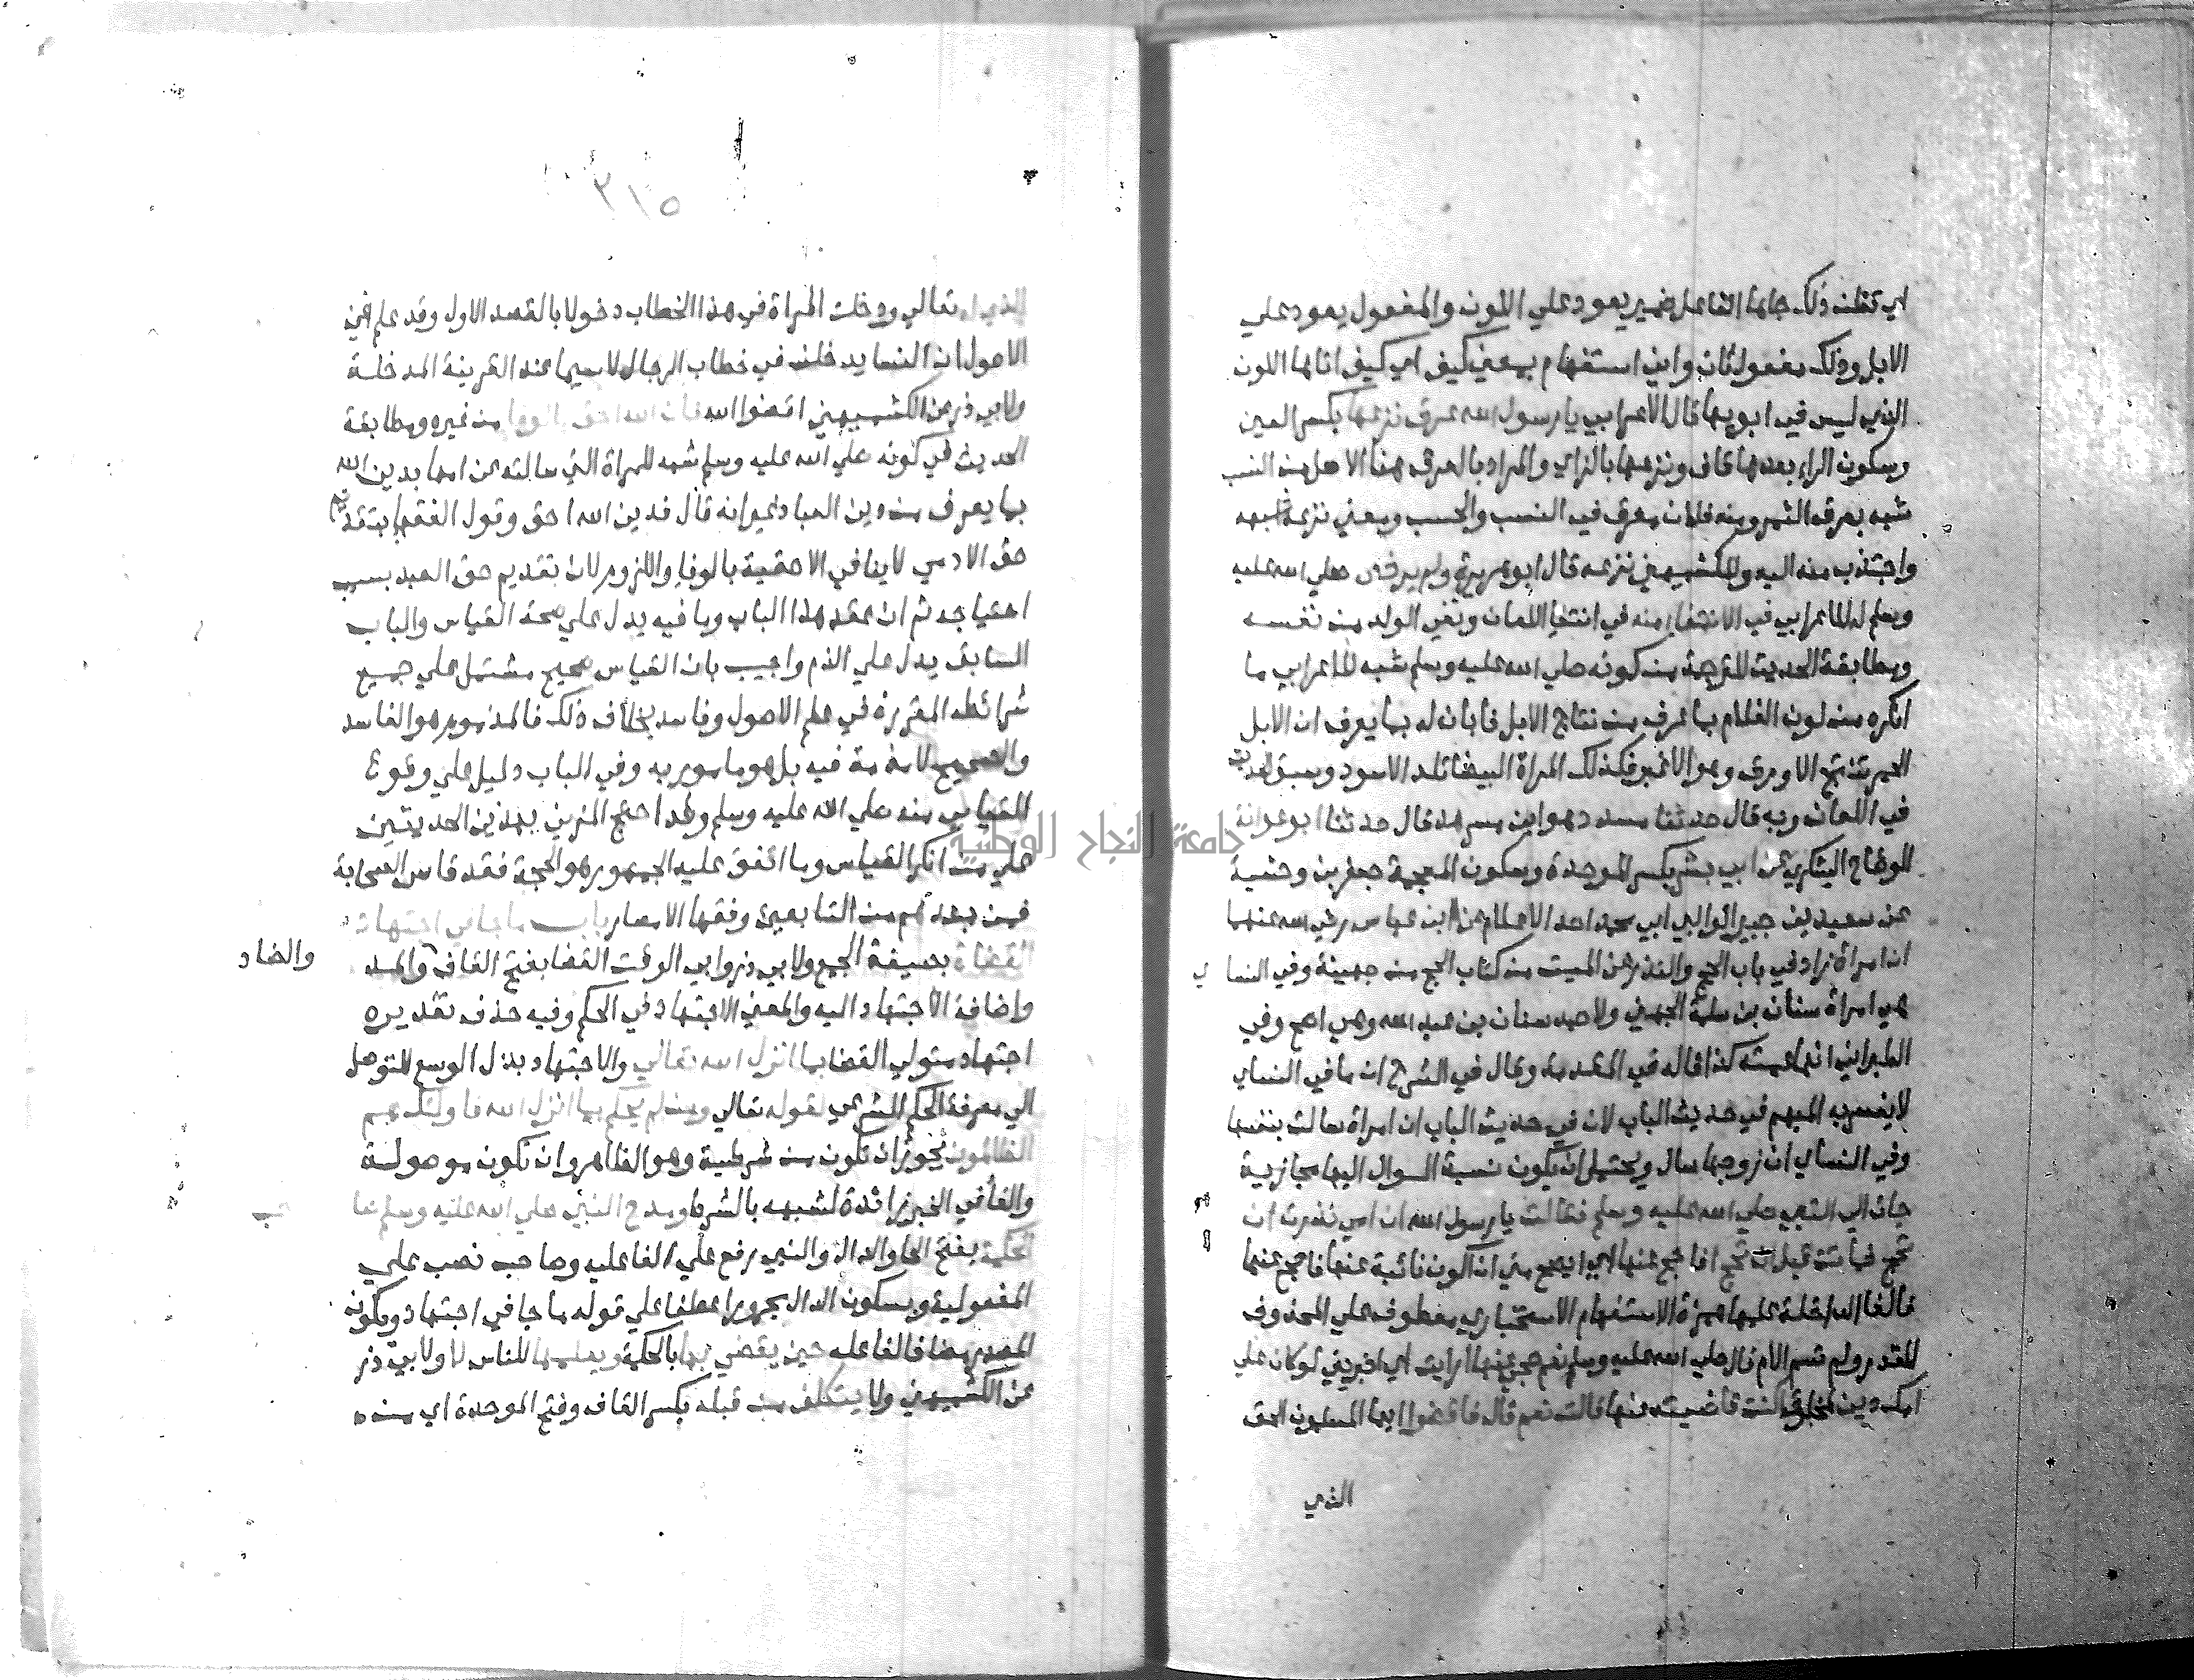 اي تظن ذلك جاءها الفاعل ضمير يعود علي اللون والمفعول يعود علي
الابل وذلك مفعول ثان واني استفهام بمعني كيف اي كيف اتاها اللون
الذي ليس في ابويها قال الاعرابي يا رسول الله عرق نزعها بكسر العين
وسكون الراء بعدها قاف ونزعها بالزاي والمراد بالعرق هنا الاصل من النسب
شبه بعرق الشجر ومنه فلان معرق في النسب والحسب ومعني نزعه اشبهه
واجتذب منه اليه وللكشميهني نزعه قال ابو هريرة ولم يرخص صلي الله عليه
وسلم له للاعرابي في الانتفاء منه في انتفيا اللعان ونفي الولد من نفسه
ومطابقة الحديث للترجمة من كونه صلي الله عليه وسلم شبه للاعرابي ما
انكره من لون الغلام بما عرف من نتاج الابل فابان له بما يعرف ان الابل
الحمر تنتج الاورق وهو الاغبر فكذلك المراة البيضا تلد الاسود وسبق الحديث
في اللعان وبه قال حدثنا مسدد هو ابن مسرهد قال حدثنا ابو عوانة
الوضاح اليشكري عن ابي بشر بكسر الموحدة وسكون المعجمة جعفر بن وحشية
عن سعيد بن جبير الوالبي ابي محمد احد الاعلام عن ابن عباس رضي الله عنهما
ان امراة زاد في باب الحج والنذر عن الميت من كتاب الحج من جهينة وفي النساي
هي امراة سنان بن سلمة الجهني ولاحمد سنان بن عبد الله وهي اصح وفي
الطبراني انها عمته كذا قاله في المقدمة وقال في الشرح ان ما في النساي
لا يفسر به المبهم في حديث الباب لان في حديث الباب ان امراة سالت بنفسها
وفي النساي ان زوجها سال ويحتمل ان يكون نسبة السوال اليها مجازية
جات الي النبي صلي الله عليه وسلم فقالت يا رسول الله ان امي نذرت ان
تحج فماتت قبل ان تحج افاحج عنها اي ايصح مني ان اكون نائبة عنها فاحج عنها
فالفا الداخلة عليها همزة الاستفهام الاستخباري معطوف علي المحذوف
المقدر ولم تسم الام قال صلي الله عليه وسلم نعم حجي عنها ارايت اي اخبريني لو كان علي
امك دين لمخلوق اكنت قاضيته عنها قالت نعم قال فاقضوا ايها المسلمون الحق
الذي
٣١٥
الذي له تعالي ودخلت المراة في هذا الخطاب دخولا بالقصد الاول وقد علم في
الاصول ان النسا يدخلن في خطاب الرجال لا سيما عند القرينة المدخلة
ولابي ذر عن الكشميهني اقضوا الله فان الله احق بالوفا من غيره ومطابقة
الحديث في كونه صلي الله عليه وسلم شبه للمراة التي سالته عن امها بدين الله
بما يعرف من دين العباد غير انه قال فدين الله احق وقول الفقها بتقديم
حق الادمي لا ينافي الاحقية بالوفا واللزوم لان تقديم حق العبد بسبب
احتياجه ثم ان عقد هذا الباب وما فيه يدل علي صحة القياس والباب
السابق يدل علي الذم واجيب بان القياس صحيح مشتمل علي جميع
شرائطه المقررة في علم الاصول وفاسد بخلاف ذلك فالمذموم هو الفاسد
والصحيح لا مذمة فيه بل هو مامور به وفي الباب دليل علي وقوع
القياس منه صلي الله عليه وسلم وقد احتج المزني بهذين الحديثين
علي من انكر القياس وما اتفق عليه الجمهور هو الحجة فقد قاس الصحابة
فمن بعدهم من التابعين وفقها الامصار باب ما جا في اجتهاد
القضاة بصيغة الجمع ولابي ذر وابي الوقت القضا بفتح القاف والمد
والضاد
واضافة الاجتهاد اليه والمعني الاجتهاد في الحكم وفيه حذف تقديره
اجتهاد متولي القضا بما انزل الله تعالي والاجتهاد بذل الوسع للتوصل
الي معرفة الحكم الشرعي لقوله تعالي ومن لم يحكم بما انزل الله فاولئك هم
الظالمون يجوز ان تكون من شرطية وهو الظاهر وان تكون موصولة
والفا في الخبر زائدة لشبهه بالشرط ومدح النبي صلي الله عليه وسلم صا
حب
الحكمة بفتح الحا والدال والنبي رفع علي الفاعلية وصاحب نصب علي
المفعولية وبسكون الدال مجرورا عطفا علي قوله ما جا في اجتهاد ويكون
المصدر مضافا لفاعله حين يقضي بها بالحكمة ويعلمها للناس لا ولابي ذر
عن الكشميهني ولا يتكلف من قبله بكسر القاف وفتح الموحدة اي من